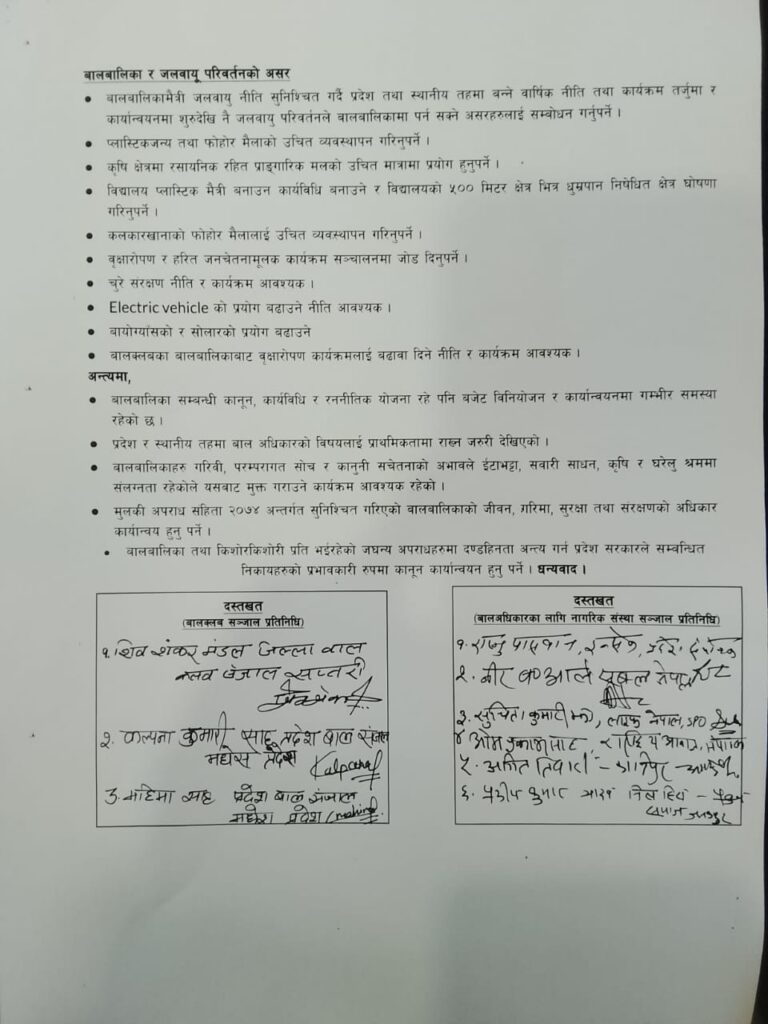 बालबालिका र जलवायू परिवर्तनको असर
● बालबालिकामैत्री जलवायु नीति सुनिश्चित गर्दै प्रदेश तथा स्थानीय तहमा बन्ने वार्षिक नीति तथा कार्यक्रम तर्जुमा र
कार्यान्वयनमा शुरुदेखि नै जलवायु परिवर्तनले बालबालिकामा पर्न सक्ने असरहरुलाई सम्बोधन गर्नुपर्ने ।
● प्लास्टिकजन्य तथा फोहोर मैलाको उचित व्यवस्थापन गरिनुपर्ने ।
● कृषि क्षेत्रमा रसायनिक रहित प्राङ्गारिक मलको उचित मात्रामा प्रयोग हुनुपर्ने ।
● विद्यालय प्लास्टिक मैत्री बनाउन कार्यविधि बनाउने र विद्यालयको ५०० मिटर क्षेत्र भित्र धुम्रपान निषेधित क्षेत्र घोषणा
गरिनुपर्ने ।
● कलकारखानाको फोहोर मैलालाई उचित व्यवस्थापन गरिनुपर्ने ।
● वृक्षारोपण र हरित जनचेतनामूलक कार्यक्रम सञ्चालनमा जोड दिनुपर्ने ।
● चुरे संरक्षण नीति र कार्यक्रम आवश्यक ।
● Electric vehicle को प्रयोग बढाउने नीति आवश्यक ।
● बायोग्याँसको र सोलारको प्रयोग बढाउने
● बालक्लबका बालबालिकाबाट वृक्षारोपण कार्यक्रमलाई बढावा दिने नीति र कार्यक्रम आवश्यक ।
अन्त्यमा,
● बालबालिका सम्बन्धी कानून, कार्यविधि र रननीतिक योजना रहे पनि बजेट विनियोजन र कार्यान्वयनमा गम्भीर समस्या
रहेको छ ।
● प्रदेश र स्थानीय तहमा बाल अधिकारको विषयलाई प्राथमिकतामा राख्न जरुरी देखिएको ।
● बालबालिकाहरु गरिवी, परम्परागत सोच र कानुनी सचेतनाको अभावले ईटाभट्टा, सवारी साधन, कृषि र घरेलु श्रममा
संलग्नता रहेकोले यसबाट मुक्त गराउने कार्यक्रम आवश्यक रहेको ।
● मुलकी अपराध संहिता २०७४ अन्तर्गत सुनिश्चित गरिएको बालबालिकाको जीवन, गरिमा, सुरक्षा तथा संरक्षणको अधिकार
कार्यान्वय हुनु पर्ने ।
● बालबालिका तथा किशोरकिशोरी प्रति भईरहेको जघन्य अपराधहरुमा दण्डहिनता अन्त्य गर्न प्रदेश सरकारले सम्वन्धित
निकायहरुको प्रभावकारी रुपमा कानून कार्यान्वयन हुनु पर्ने । धन्यवाद ।
दस्तखत
(बालक्लब सञ्जाल प्रतिनिधि)
१. शिव शंकर मंडल जिल्ला बाल
क्लव संजाल सप्तरी
२. कल्पना कुमारी साह प्रदेश बाल संजाल
मधेस प्रदेश Kalpana
३. महिमा साह प्रदेश बाल संजाल
मधेश प्रदेश
दस्तखत
(बालअधिकारका लागि नागरिक संस्था सञ्जाल प्रतिनिधि)
१. राजु पासवान,
२. वीर
३. सुचिता कुमारी नेपाल, SPD
४ ओम प्रकाश
५. अजित तिवारी -
६. प्रदीप कुमार